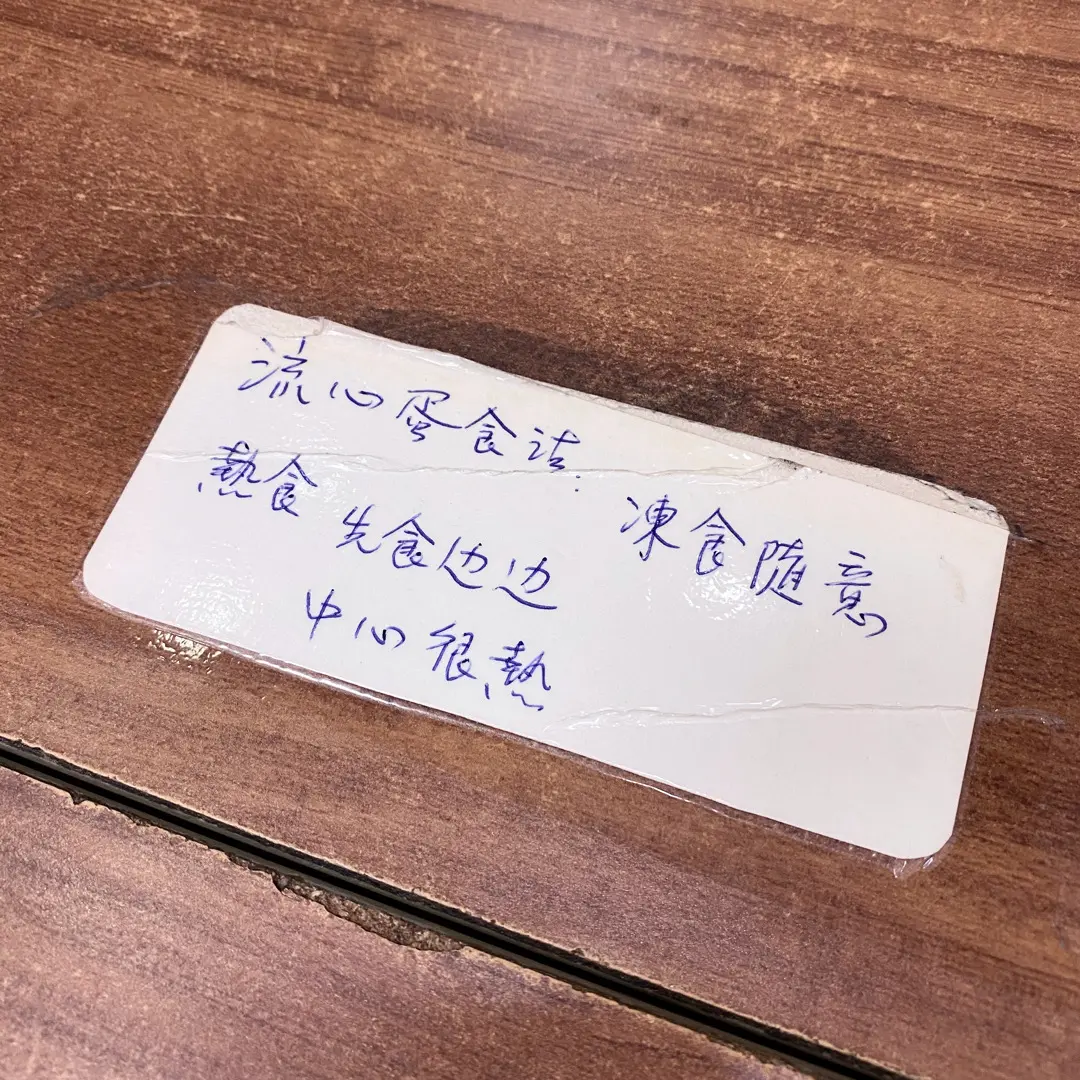 流心蛋食法:
熱食 先食边边
中心很熱
凍食隨意